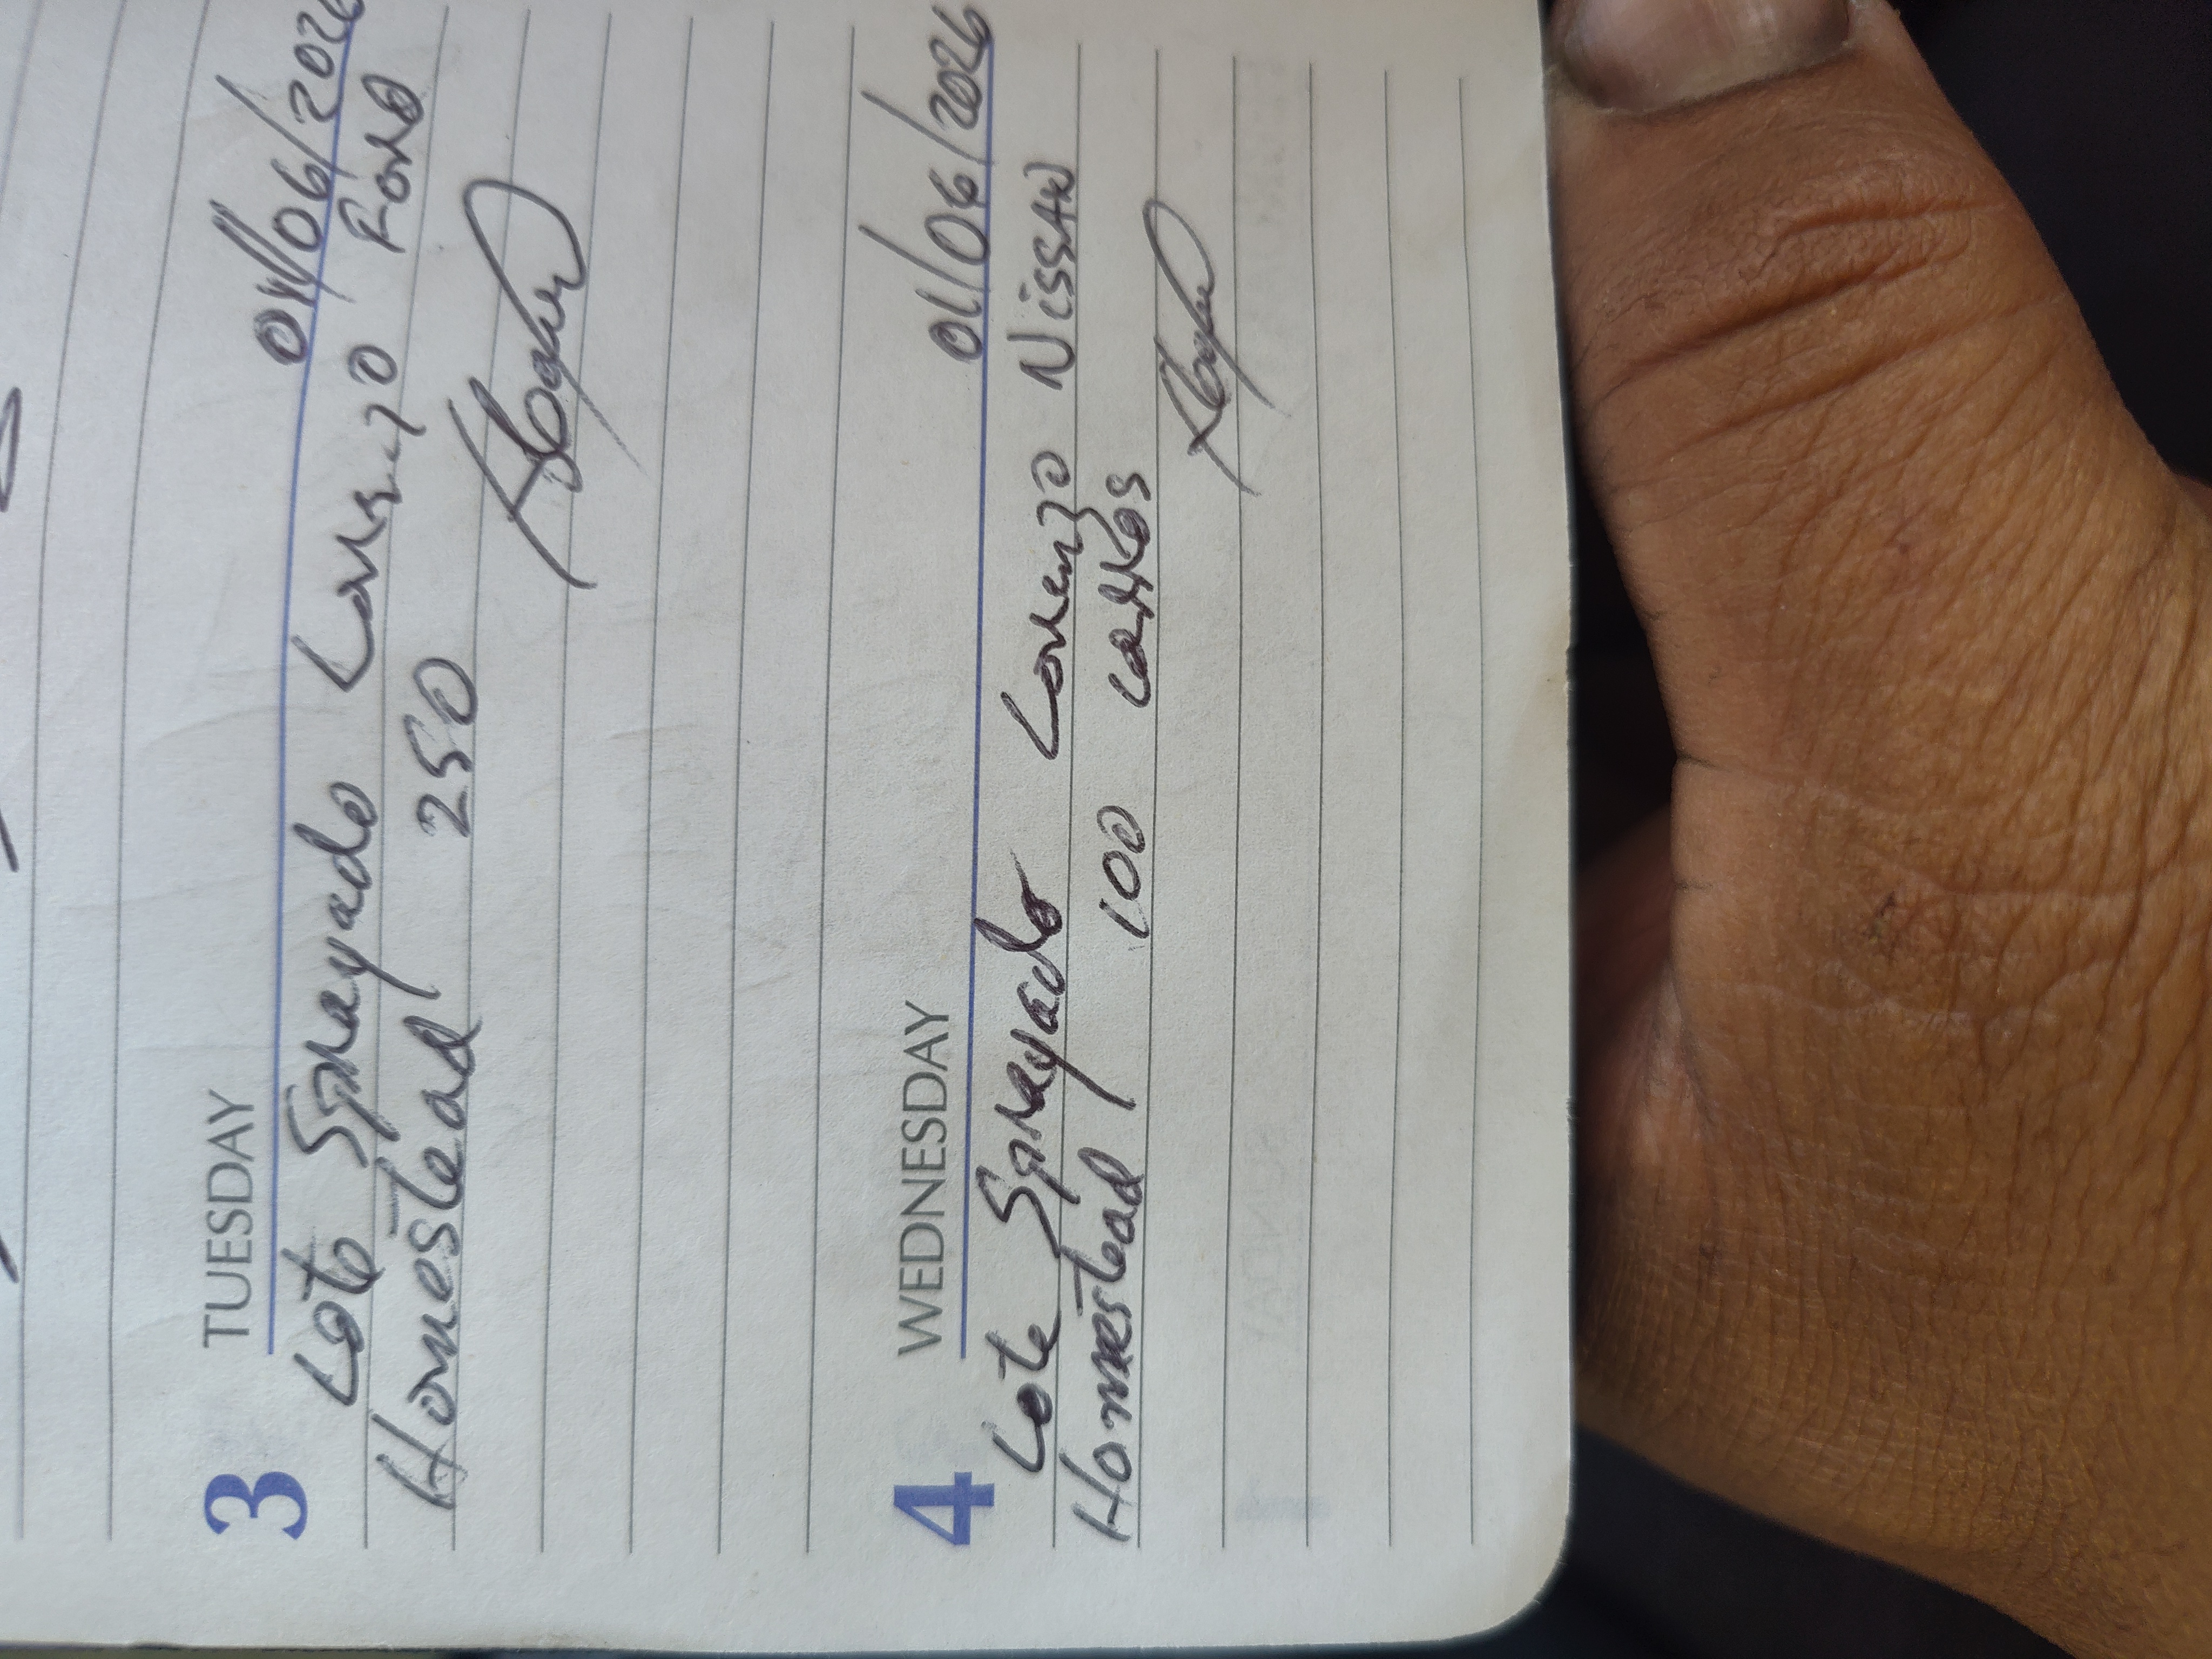 3 TUESDAY 01/06/2026
Lote Sprayado Lorenzo Ford
Homestead 250
4 WEDNESDAY 01/06/2026
Lote Sprayado Lorenzo Nissan
Homestead 100 carros